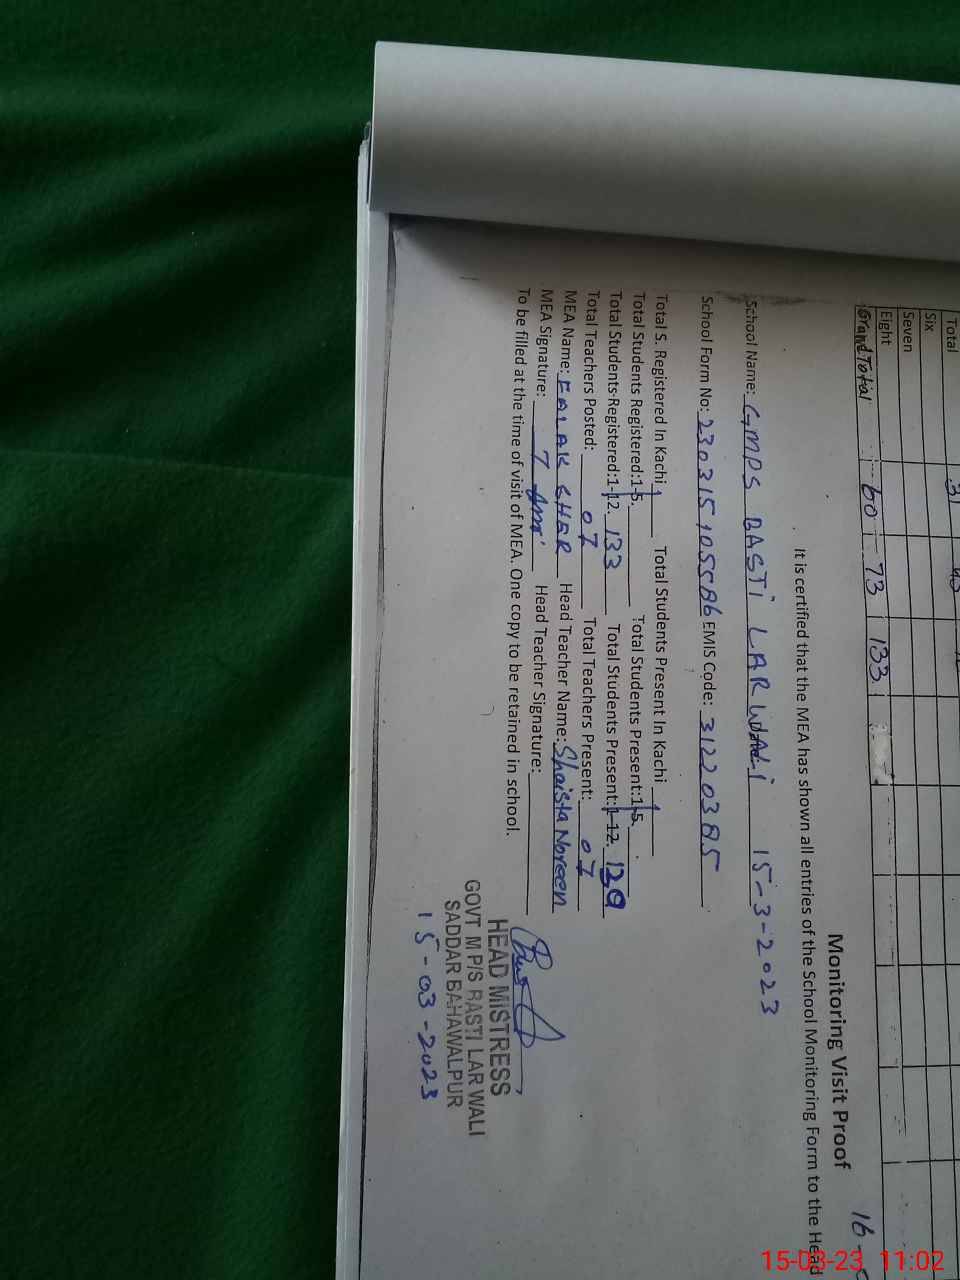 Total 31
Six
Seven
Eight
Grand Total 60 73 133
Monitoring Visit Proof 16-
It is certified that the MEA has shown all entries of the School Monitoring Form to the Head
School Name: GMPS BASTI LAR WALI 15-3-2023
School Form No: EMIS Code: 31220385
Total S. Registered In Kachi Total Students Present In Kachi
Total Students Registered:1-5. Total Students Present:1-5.
Total Students Registered:1-12. 133 Total Students Present:1-12.
Total Teachers Posted: 07 Total Teachers Present: 07
MEA Name: FALAK SHER Head Teacher Name: Shaista Noreen
MEA Signature: Head Teacher Signature:
To be filled at the time of visit of MEA. One copy to be retained in school.
HEAD MISTRESS
GOVT M P/S BASTI LAR WALI
SADDAR BAHAWALPUR
15-03-2023
15-03-23 11:02